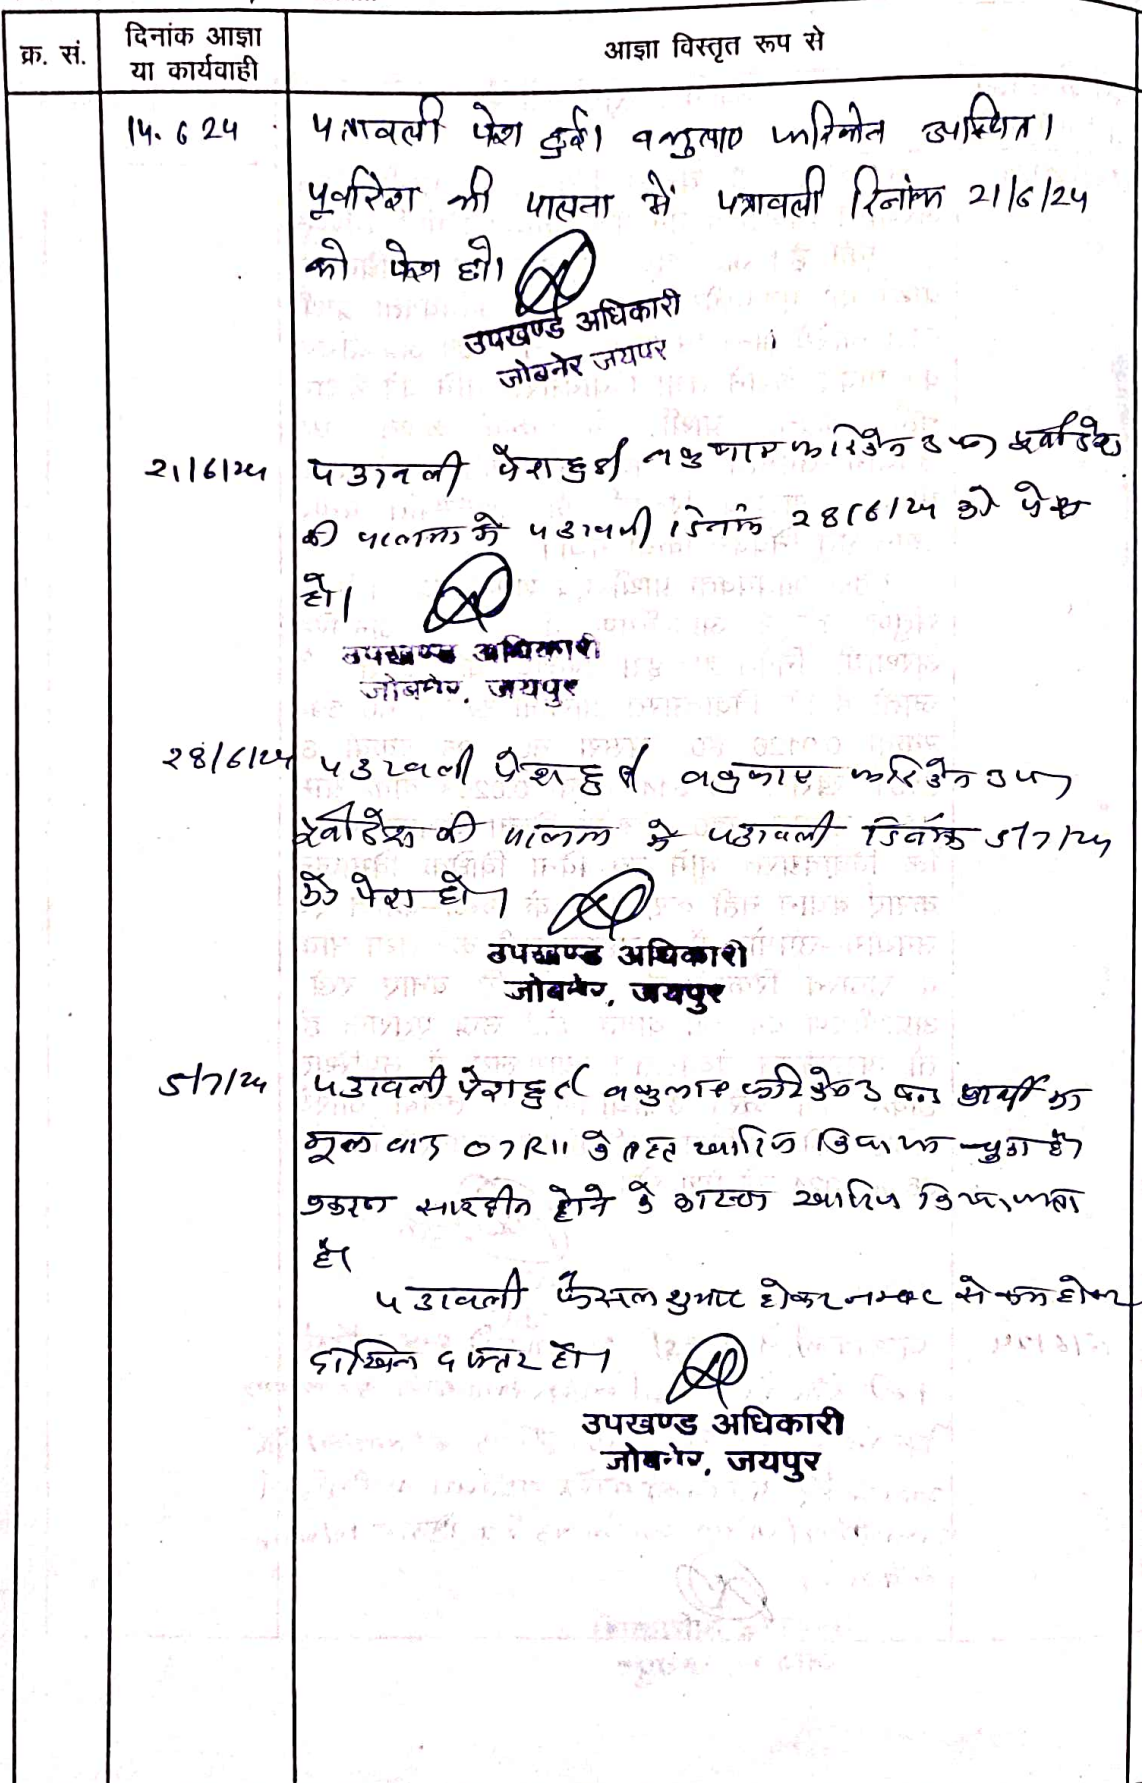 क्र. सं.
दिनांक आज्ञा
या कार्यवाही
आज्ञा विस्तृत रूप से
14.6 24 पत्रावली पेश हुई। वकुलाए फरिकेन उपस्थित।
पूर्वादेश की पालना में पत्रावली दिनांक 21/6/24
को पेश हो।
उपखण्ड अधिकारी
जोबनेर जयपुर
21/6/24 पत्रावली पेश हुई वकुलाए फरिकेन उप० पूर्वादेश
की पालना में पत्रावली दिनांक 28/6/24 को पेश
हो।
उपखण्ड अधिकारी
जोबनेर, जयपुर
28/6/24 पत्रावली पेश हुई वकुलाए फरिकेन उप०
पूर्वादेश की पालना में पत्रावली दिनांक 5/7/24
को पेश हो।
उपखण्ड अधिकारी
जोबनेर, जयपुर
5/7/24 पत्रावली पेश हुई वकुलाए फरिकेन उप० प्रार्थी का
मूल वाद O7R11 के तहत खारिज किया जा चुका है।
प्रकरण सारहीन होने के कारण खारिज किया जाता
है।
पत्रावली फैसल शुमार होकर नम्बर से कम होकर
दाखिल दफ्तर हो।
उपखण्ड अधिकारी
जोबनेर, जयपुर